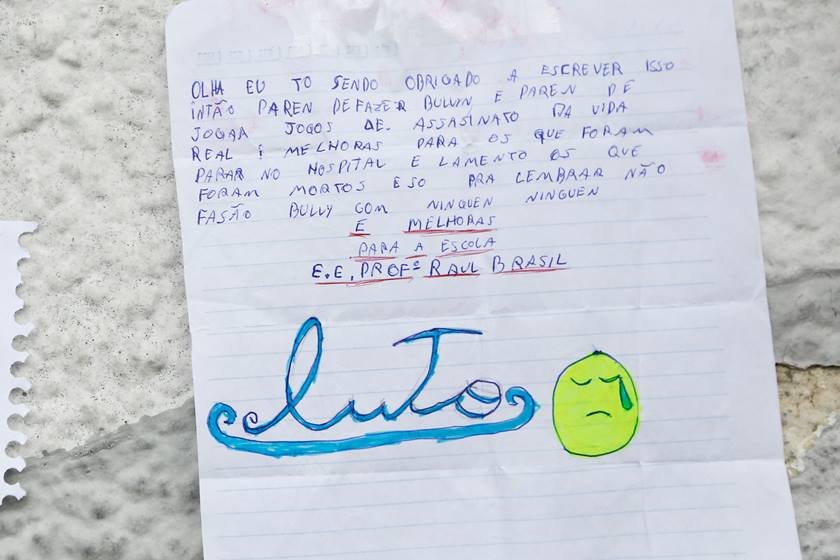 OLHA EU TO SENDO OBRIGADO A ESCREVER ISSO
INTÃO PAREN DE FAZER BULLYN E PAREN DE
JOGAR JOGOS DE ASSASINATO DA VIDA
REAL E MELHORAS PARA OS QUE FORAM
PARAR NO HOSPITAL E LAMENTO OS QUE
FORAM MORTOS E SO PRA LEMBRAR NÃO
FASÃO BULLY COM NINGUEN NINGUEN
E MELHORAS
PARA A ESCOLA
E.E. PROFº RAUL BRASIL
luto